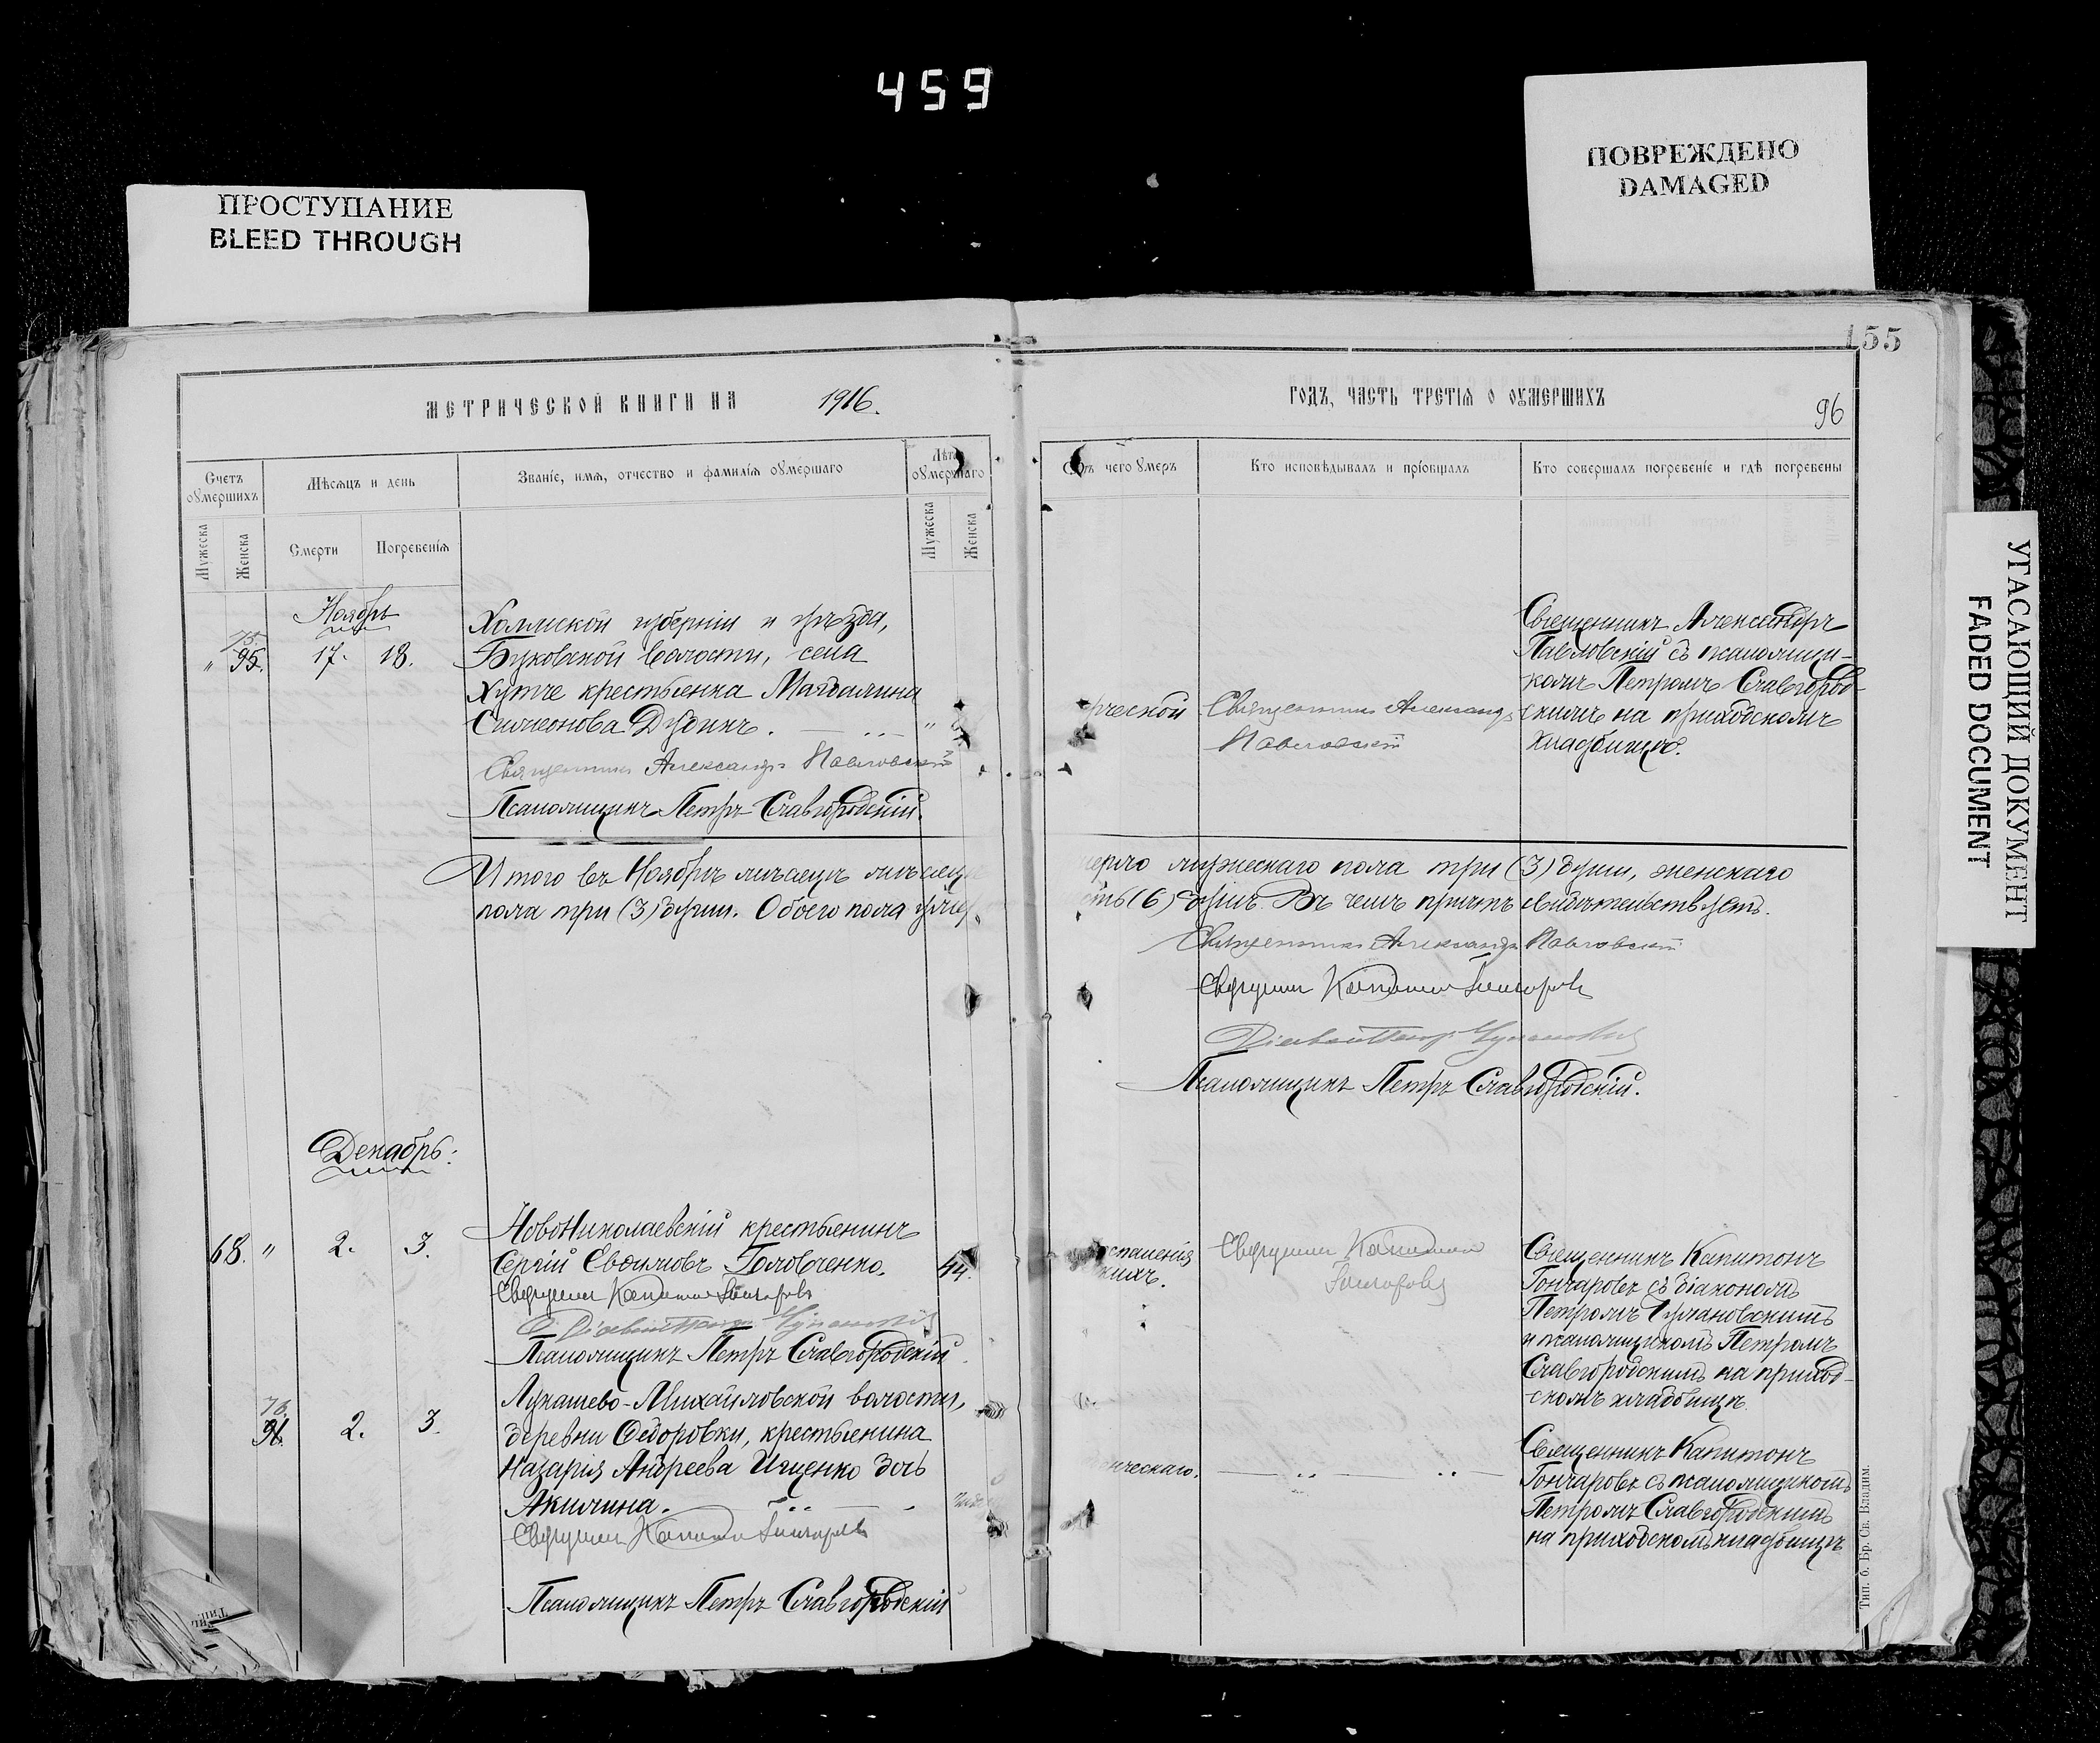 459
ПРОСТУПАНИЕ
BLEED THROUGH
ПОВРЕЖДЕНО
DAMAGED
УГАСАЮЩИЙ ДОКУМЕНТ
FADED DOCUMENT
155
МЕТРИЧЕСКОЙ КНИГИ НА 1916.
Счетъ умершихъ
Мѣсяцъ и день
Званіе, имя, отчество и фамилія умершаго
Лѣта умершаго
Мужеска
Женска
Смерти
Погребенія
Мужеска
Женска
Ноябрь
75.
" 95. 17. 18.
Холмской губерніи и уѣзда,
Буковской волости, села
Хутче крестьянка Магдалина
Симеонова Дубикъ. "
Священникъ Александръ Павловскій
Псаломщикъ Петръ Славгородскій.
Итого въ Ноябрѣ мѣсяцѣ
пола три (3) души. Обоего пола
Декабрь:
68. " 2. 3.
НовоНиколаевскій крестьянинъ
Сергій Евфимовъ Головченко. 44.
Священникъ Капитонъ Гончаровъ
Псаломщикъ Петръ Славгородскій
76.
96. 2. 3.
Лукашево-Михайловской волости,
деревни Федоровки, крестьянина
Назарія Андреева Ищенко дочь
Акилина.
Священникъ Капитонъ Гончаровъ
Псаломщикъ Петръ Славгородскій
ГОДЪ, ЧАСТЬ ТРЕТІЯ О УМЕРШИХЪ
96
Отъ чего умеръ
Кто исповѣдывалъ и пріобщалъ
Кто совершалъ погребеніе и гдѣ погребены
ческой
Священникъ Александръ
Павловскій
Священникъ Александръ
Павловскій съ псаломщи-
комъ Петромъ Славгород-
скимъ на приходскомъ
кладбищѣ.
мужескаго пола три (3) души, женскаго
(6) душъ. Въ чемъ причтъ свидѣтельствуетъ.
Священникъ Александръ Павловскій
Священникъ Капитонъ Гончаровъ
Псаломщикъ Петръ Славгородскій.
спаленія
кихъ.
Священникъ Капитонъ
Гончаровъ
Священникъ Капитонъ
Гончаровъ съ діакономъ
Петромъ
и псаломщикомъ Петромъ
Славгородскимъ на приход-
скомъ кладбищѣ.
ческаго.
Священникъ Капитонъ
Гончаровъ съ псаломщикомъ
Петромъ Славгородскимъ
на приходскомъ кладбищѣ
Тип. б. Бр. Св. Владим.